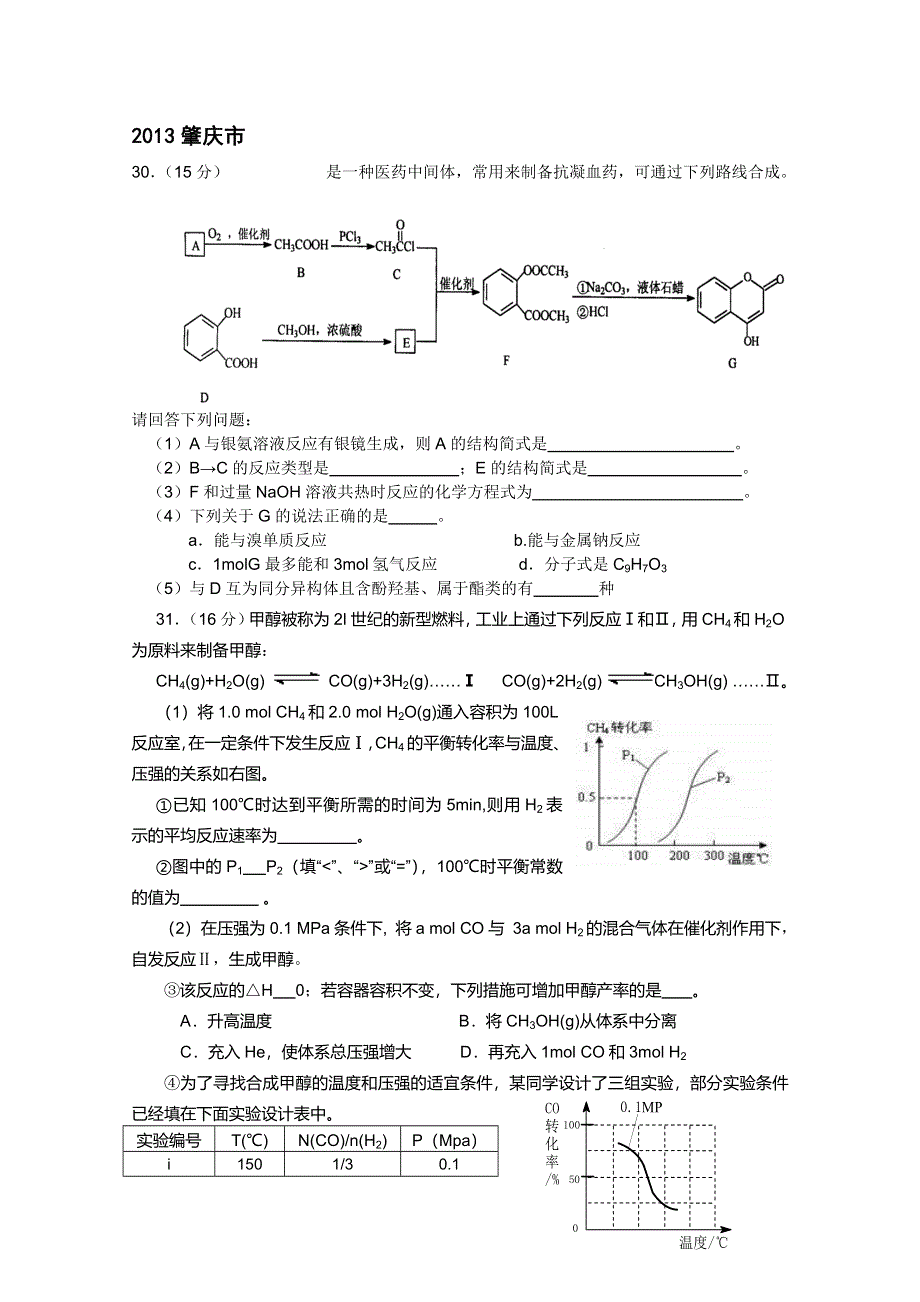 2013 肇庆市
30．（15 分） 是一种医药中间体，常用来制备抗凝血药，可通过下列路线合成。
A O₂，催化剂 CH₃COOH PCl₃ CH₃CCl O
B C
催化剂
OOCCH₃ COOCH₃
F
①Na₂CO₃，液体石蜡
②HCl
O O OH
G
OH COOH
D
CH₃OH，浓硫酸
E
请回答下列问题：
（1）A 与银氨溶液反应有银镜生成，则 A 的结构简式是 。
（2）B→C 的反应类型是 ；E 的结构简式是 。
（3）F 和过量 NaOH 溶液共热时反应的化学方程式为 。
（4）下列关于 G 的说法正确的是 。
a．能与溴单质反应 b.能与金属钠反应
c．1molG 最多能和 3mol 氢气反应 d．分子式是 C₉H₇O₃
（5）与 D 互为同分异构体且含酚羟基、属于酯类的有 种
31．（16 分）甲醇被称为 2l 世纪的新型燃料，工业上通过下列反应Ⅰ和Ⅱ，用 CH₄和 H₂O
为原料来制备甲醇：
CH₄(g)+H₂O(g) ⇌ CO(g)+3H₂(g)……Ⅰ CO(g)+2H₂(g) ⇌ CH₃OH(g) ……Ⅱ。
（1）将 1.0 mol CH₄和 2.0 mol H₂O(g)通入容积为 100L
反应室，在一定条件下发生反应Ⅰ，CH₄的平衡转化率与温度、
压强的关系如右图。
①已知 100℃时达到平衡所需的时间为 5min,则用 H₂表
示的平均反应速率为 。
②图中的 P₁ P₂（填“<”、“>”或“=”），100℃时平衡常数
的值为 。
CH₄ 转化率
1
P₁
P₂
0.5
0
100 200 300 温度℃
（2）在压强为 0.1 MPa 条件下, 将 a mol CO 与 3a mol H₂的混合气体在催化剂作用下，
自发反应Ⅱ，生成甲醇。
③该反应的△H 0；若容器容积不变，下列措施可增加甲醇产率的是 。
A．升高温度 B．将 CH₃OH(g)从体系中分离
C．充入 He，使体系总压强增大 D．再充入 1mol CO 和 3mol H₂
④为了寻找合成甲醇的温度和压强的适宜条件，某同学设计了三组实验，部分实验条件
已经填在下面实验设计表中。
实验编号 T(℃) N(CO)/n(H₂) P（Mpa）
i 150 1/3 0.1
CO转化率/%
0.1MP
100
50
0
温度/℃